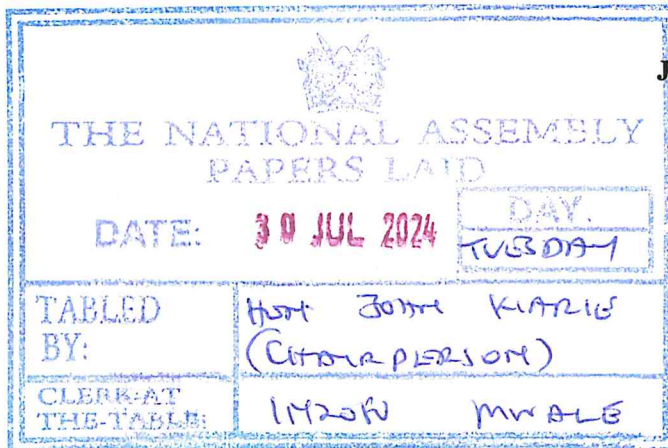 J
THE NATIONAL ASSEMBLY
PAPERS LAID
DATE: 30 JUL 2024
DAY.
TUESDAY
TABLED BY:
HON JOHN KIARIE
(CHAIRPERSON)
CLERK-AT
THE-TABLE:
MWALE